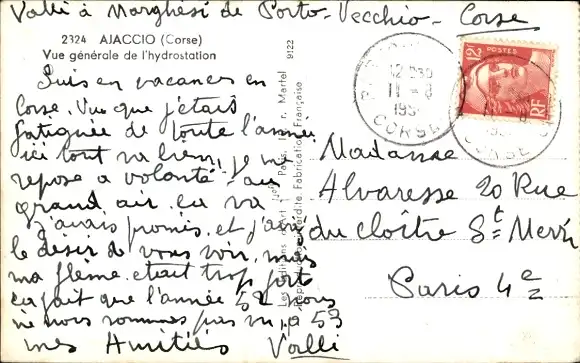 Valli à Marghesi de Porto-Vecchio - Corse
2324 AJACCIO (Corse)
Vue générale de l'hydrostation
9122
Suis en vacances en
Corse. Vue que j'étais
fatiguée de toute l'année
ici tout va bien, je me
repose à volonté - au
grand air. ça va
j'avais promis, et j'ai
le désir de vous voir, mais
ma fleme était trop forte
ça fait que l'année 52 nous
ne nous sommes pas vu, à 53
mes Amitiés Valli
Les Editions d'Art
Reproduction Interdite. Fabrication Française
12 F
POSTES
RF
CORSE
CORSE
Madame
Alvaresse 20 Rue
du cloître St Merri
Paris 4e